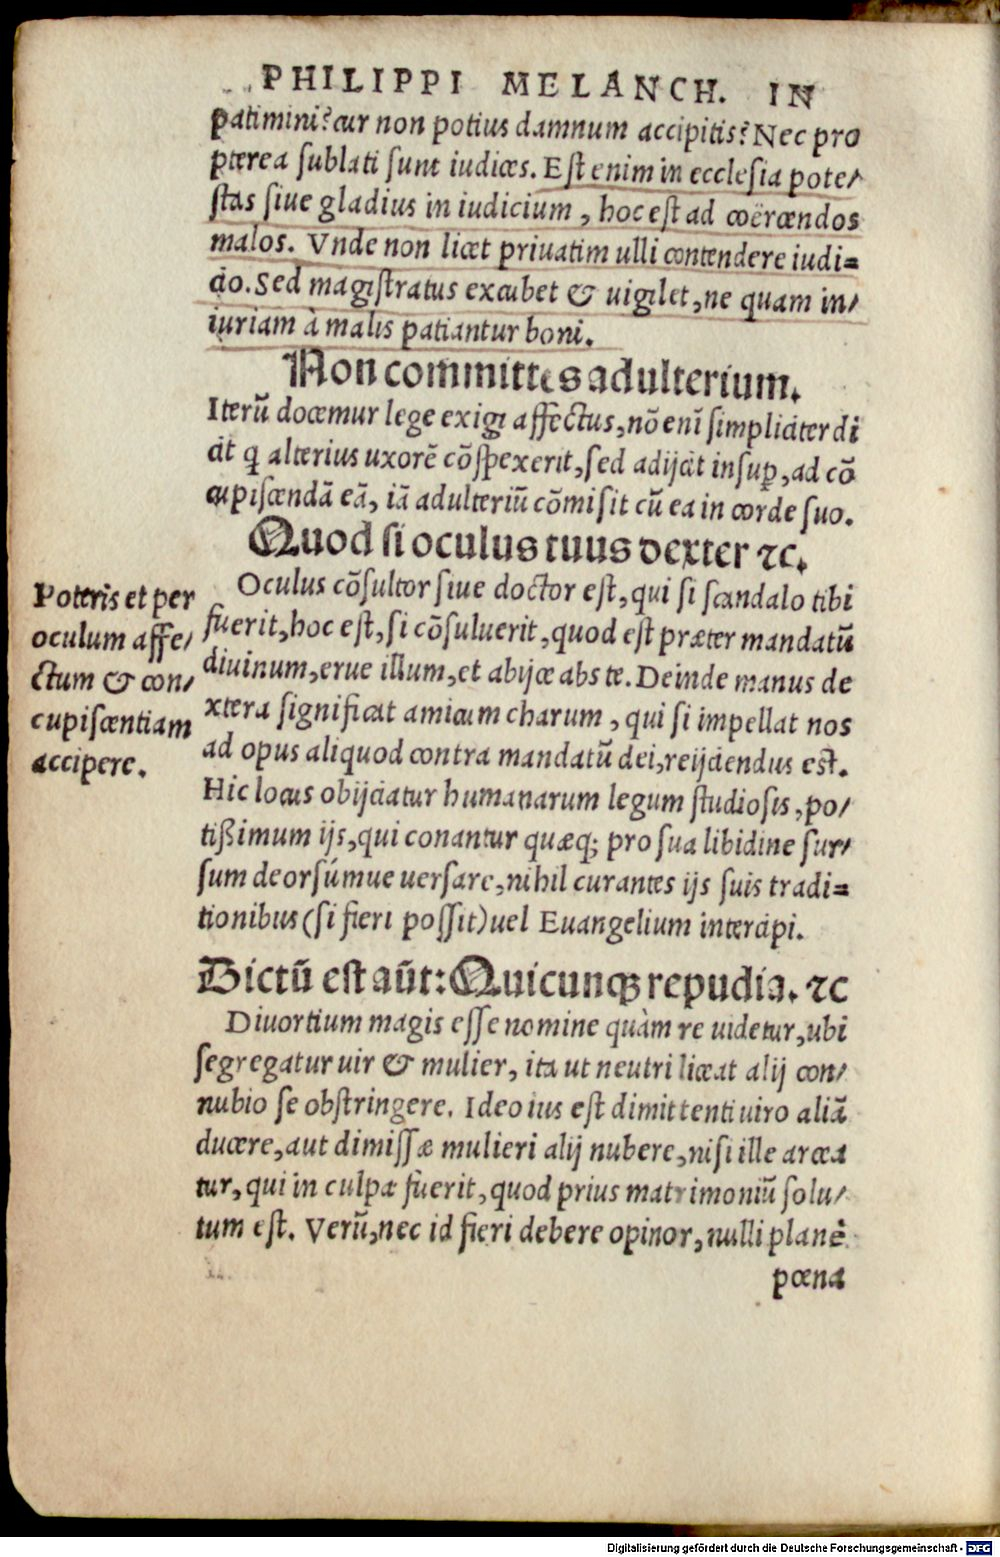 PHILIPPI MELANCH. IN
patimini? cur non potius damnum accipitis? Nec pro
pterea sublati sunt iudices. Est enim in ecclesia pote/
stas siue gladius in iudicium, hoc est ad coërcendos
malos. Vnde non licet priuatim ulli contendere iudi=
cio. Sed magistratus excubet & uigilet, ne quam in/
iuriam à malis patiantur boni.
Non committes adulterium.
Iterũ docemur lege exigi affectus, nõ enĩ simpliciter di
cit q alterius uxorẽ cõspexerit, sed adijcit insuꝑ, ad cõ
cupiscendã eã, iã adulteriũ cõmisit cũ ea in corde suo.
Quod si oculus tuus dexter ⁊c.
Oculus cõsultor siue doctor est, qui si scandalo tibi
fuerit, hoc est, si cõsuluerit, quod est præter mandatũ
diuinum, erue illum, et abijce abs te. Deinde manus de
xtera significat amicum charum, qui si impellat nos
ad opus aliquod contra mandatũ dei, reijciendus est.
Hic locus obijciatur humanarum legum studiosis, po/
tißimum ijs, qui conantur quæq; pro sua libidine sur/
sum deorsúmue uersare, nihil curantes ijs suis tradi=
tionibus (si fieri possit) uel Euangelium intercipi.
Poteris et per
oculum affe/
ctum & con/
cupiscentiam
accipere.
Dictũ est aũt: Quicunqꝫ repudia. ⁊c
Diuortium magis esse nomine quàm re uidetur, ubi
segregatur uir & mulier, ita ut neutri liceat alij con/
nubio se obstringere. Ideo ius est dimittenti uiro aliã
ducere, aut dimissæ mulieri alij nubere, nisi ille arcea
tur, qui in culpa fuerit, quod prius matrimoniũ solu/
tum est. Verũ, nec id fieri debere opinor, nulli planè
pœna
Digitalisierung gefördert durch die Deutsche Forschungsgemeinschaft - DFG